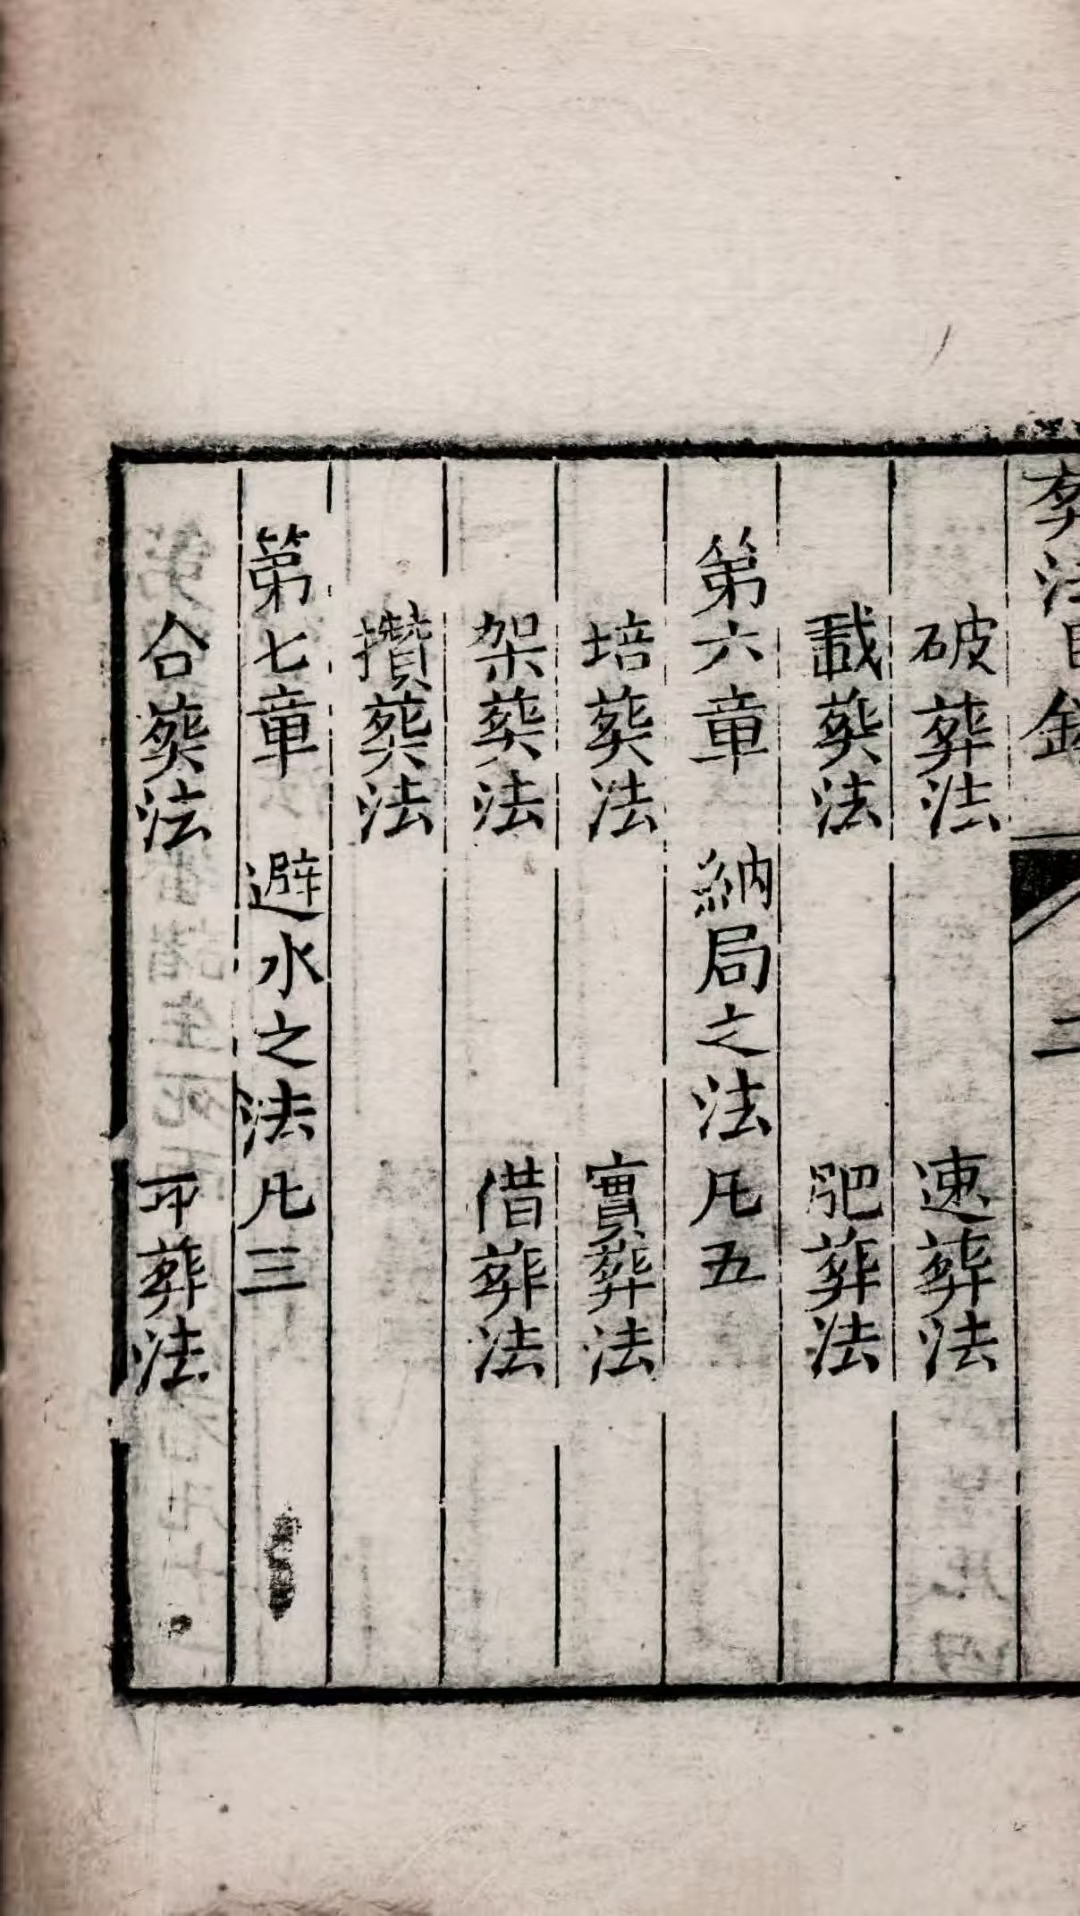 葬法目錄 二
破葬法 速葬法
載葬法 肥葬法
第六章 納局之法凡五
培葬法 實葬法
架葬法 借葬法
攢葬法
第七章 避水之法凡三
合葬法 葬法